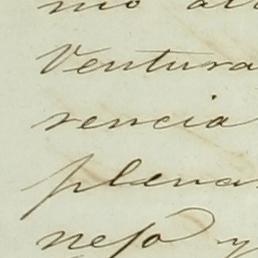 mo
Ventura
rencia
plena
neso y